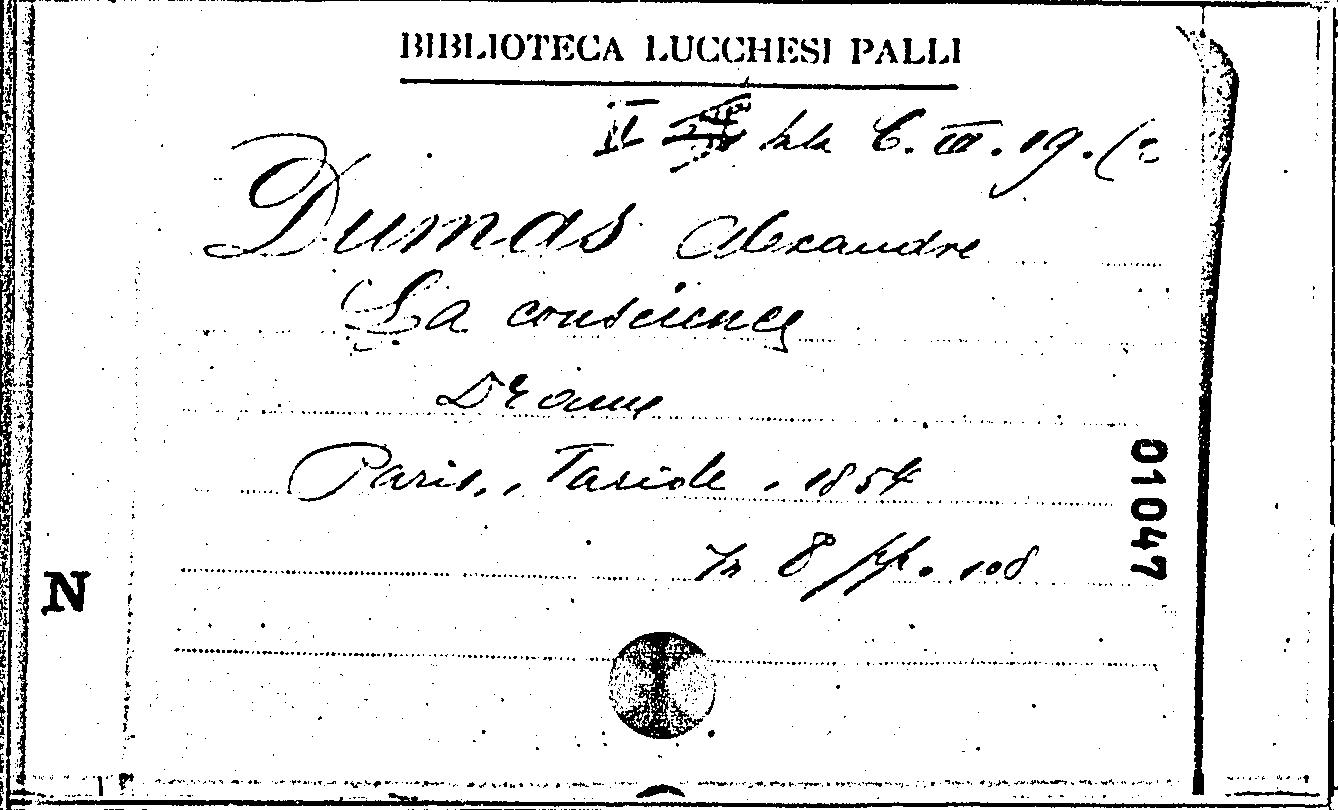 BIBLIOTECA LUCCHESI PALLI
II Sala C. III. 19. (2
Dumas Alexandre
La conscience
Drame
Paris, Taride, 1854
In 8 pp. 108
01047
N